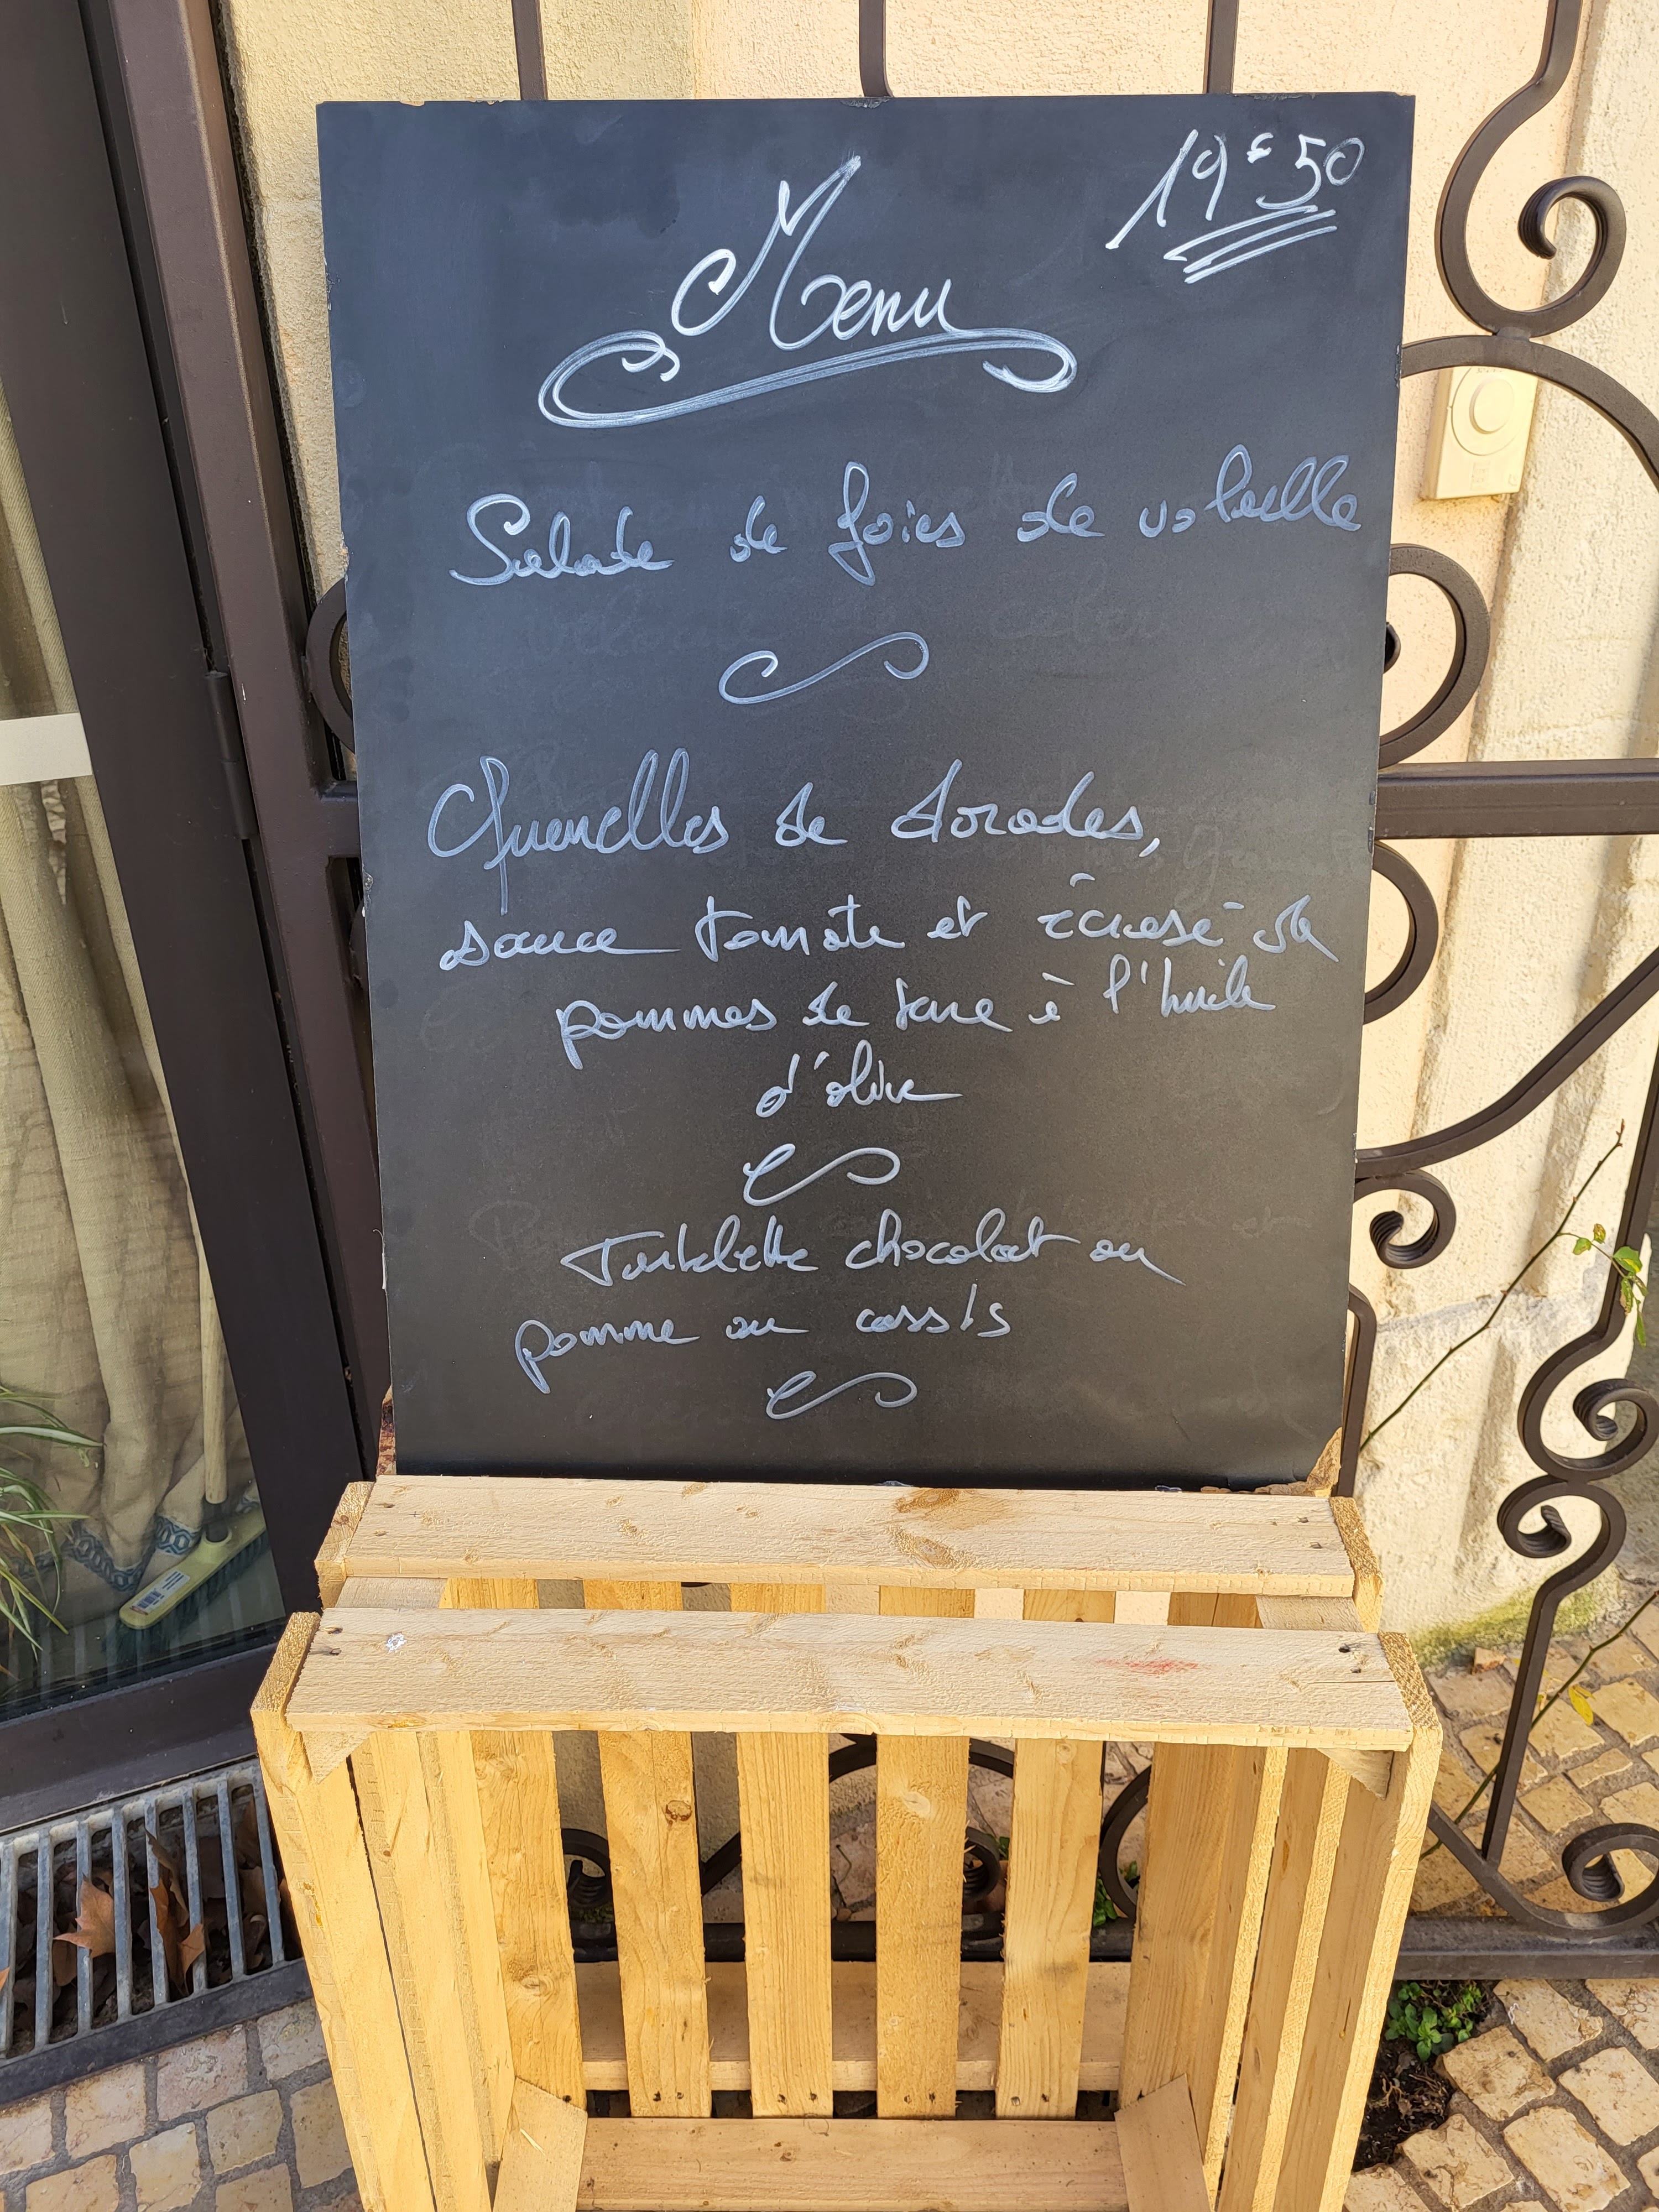 19€50
Menu
Salade de foies de volaille
Quenelles de dorades,
sauce tomate et écrasé de
pommes de terre à l'huile
d'olive
Tartelette chocolat ou
pomme ou cassis